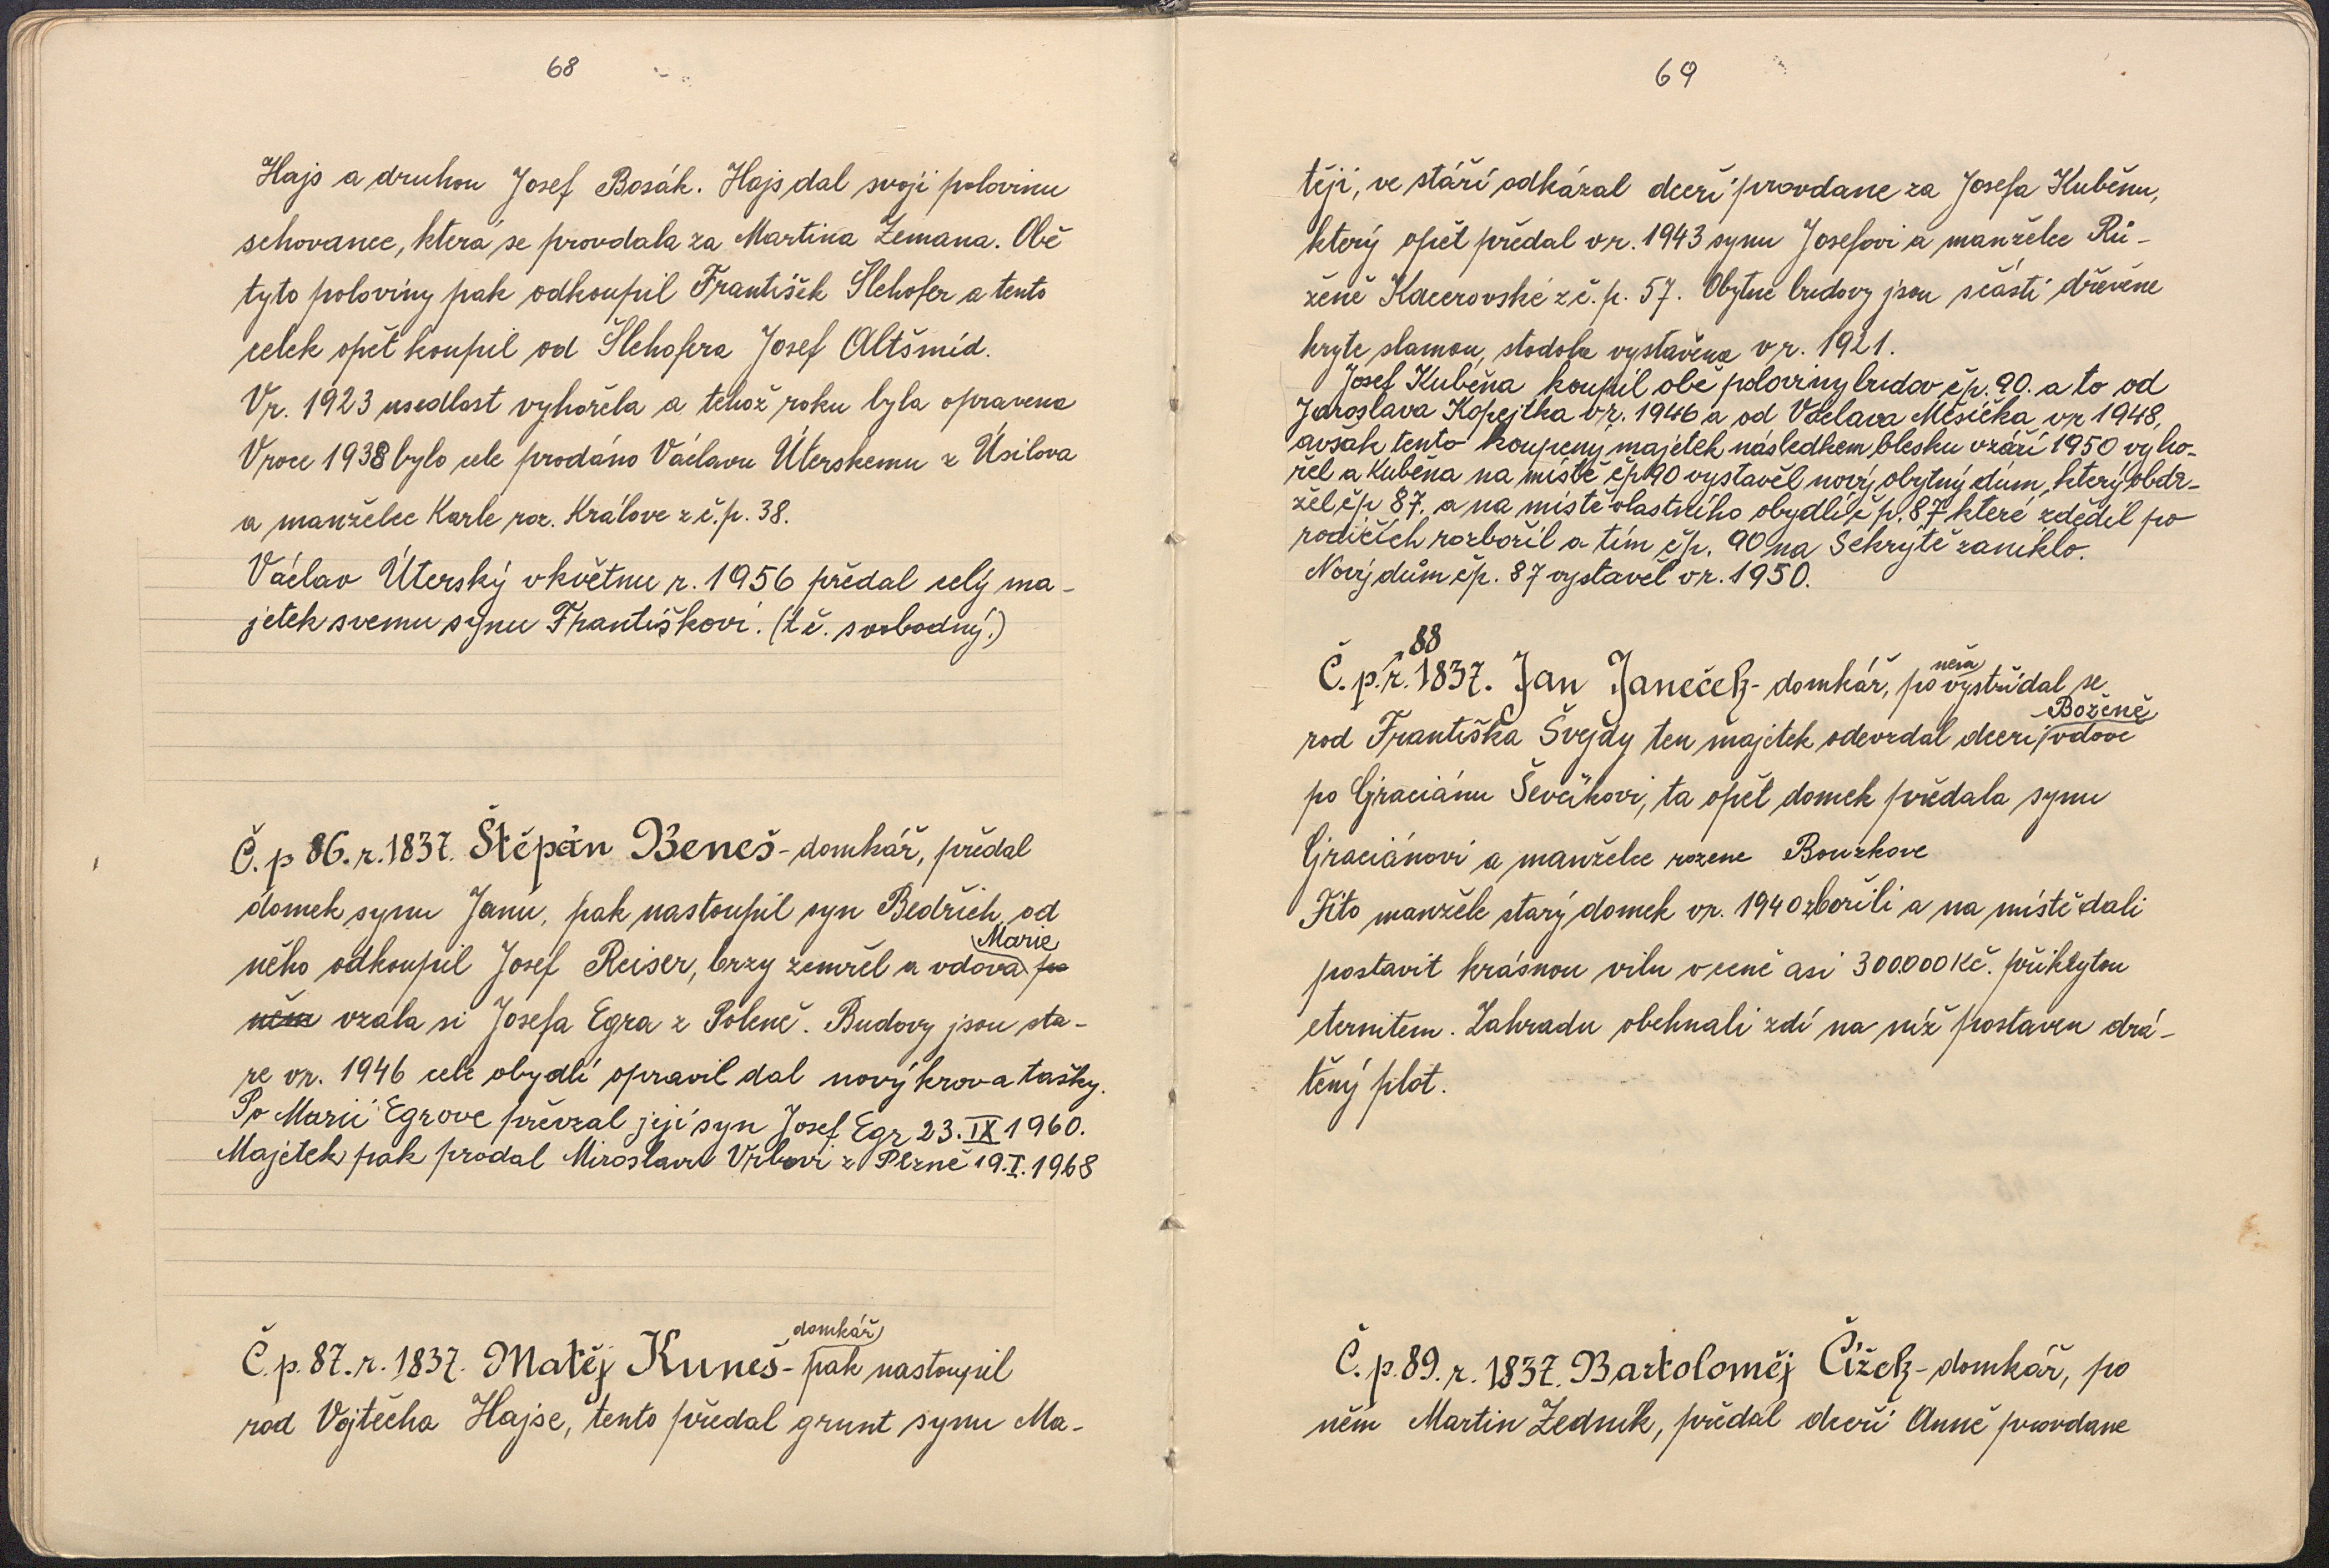 68
Hajs a druhou Josef Bosák. Hajs dal svoji polovinu
schovance, která se provdala za Martina Zemana. Obě
tyto poloviny pak odkoupil František Šlehofer a tento
celek opět koupil od Šlehofera Josef Altšmíd.
Vr. 1923 usedlost vyhořela a tehož roku byla opravena
Vroce 1938 bylo cele prodáno Václavu Úterskemu z Úsilova
a manželce Karle roz. Králove z č.p. 38.
Václav Úterský vkvětnu r. 1956 předal celý ma-
jetek svemu synu Františkovi. (t č. svobodný.)
Č. p 86. r. 1837. Štěpán Beneš - domkář, předal
domek synu Janu, pak nastoupil syn Bedřich, od
něho odkoupil Josef Reiser, brzy zemřel a vdova Marie po
něm vzala si Josefa Egra z Poleně. Budovy jsou sta-
re vr. 1946 cele obydlí opravil dal nový krov a tašky.
Po Marii Egrove převzal její syn Josef Egr 23. IX 1960.
Majetek pak prodal Miroslavu Vrbovi z Plzně 19. I. 1968
Č. p. 87. r. 1837. Matěj Kuneš - domkář pak nastoupil
rod Vojtěcha Hajse, tento předal grunt synu Ma-
69
těji, ve stáří odkázal dceři provdane za Josefa Kuběnu,
který opět předal vr. 1943 synu Josefovi a manželce Rů-
ženě Kacerovské z č. p. 57. Obytne budovy jsou sčásti dřevěne
kryte slamou, stodola vystavěna v r. 1921.
Josef Kuběna koupil obě poloviny budov čp. 90. a to od
Jaroslava Kopejtka vr. 1946 a od Václava Měsíčka vr 1948,
avšak tento koupený majetek následkem blesku vzáří 1950 vyho-
řel a Kuběna na místě čp 90 vystavěl nový obytný dům, který obdr-
žel čp 87. a na místě vlastního obydlí č p. 87 které zdědil po
rodičích rozbořil a tím čp. 90 na Sekrytě zaniklo.
Nový dům čp. 87 vystavěl vr. 1950.
Č. p. 88 r. 1837. Jan Janeček - domkář, po něm vystřídal se
rod Františka Švejdy ten majetek odevzdal dceri Boženě vdově
po Graciánu Ševčíkovi, ta opět domek předala synu
Graciánovi a manželce rozene Bouzkove
Tito manžele starý domek vr. 1940 zbořili a na místě dali
postavit krásnou vilu v ceně asi 300.000 Kč. přikrytou
eternitem. Zahradu obehnali zdí na níž postaven drá-
těný plot.
Č. p. 89. r. 1837. Bartoloměj Čížek - domkář, po
něm Martin Zedník, předal dceři Anně provdane